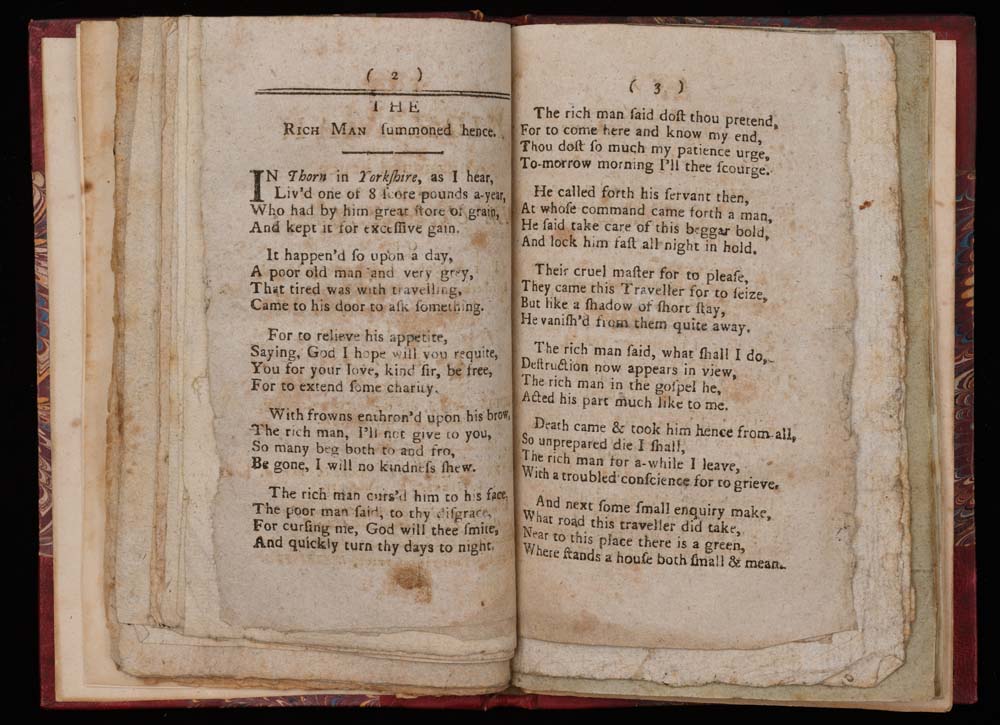 ( 2 )
THE
RICH MAN ſummoned hence.
IN Thorn in Yorkſhire, as I hear,
Liv'd one of 8 ſcore pounds a-year,
Who had by him great ſtore of grain,
And kept it for exceſſive gain.
It happen'd ſo upon a day,
A poor old man and very grey,
That tired was with travelling,
Came to his door to aſk ſomething.
For to relieve his appetite,
Saying, God I hope will you requite,
You for your love, kind ſir, be free,
For to extend ſome charity.
With frowns enthron'd upon his brow,
The rich man, I'll not give to you,
So many beg both to and fro,
Be gone, I will no kindneſs ſhew.
The rich man curs'd him to his face,
The poor man ſaid, to thy diſgrace,
For curſing me, God will thee ſmite,
And quickly turn thy days to night.
( 3 )
The rich man ſaid doſt thou pretend,
For to come here and know my end,
Thou doſt ſo much my patience urge,
To-morrow morning I'll thee ſcourge.
He called forth his ſervant then,
At whoſe command came forth a man,
He ſaid take care of this beggar bold,
And lock him faſt all night in hold.
Their cruel maſter for to pleaſe,
They came this Traveller for to ſeize,
But like a ſhadow of ſhort ſtay,
He vaniſh'd from them quite away.
The rich man ſaid, what ſhall I do,
Deſtruction now appears in view,
The rich man in the goſpel he,
Acted his part much like to me.
Death came & took him hence from all,
So unprepared die I ſhall,
The rich man for a-while I leave,
With a troubled conſcience for to grieve.
And next ſome ſmall enquiry make,
What road this traveller did take,
Near to this place there is a green,
Where ſtands a houſe both ſmall & mean.